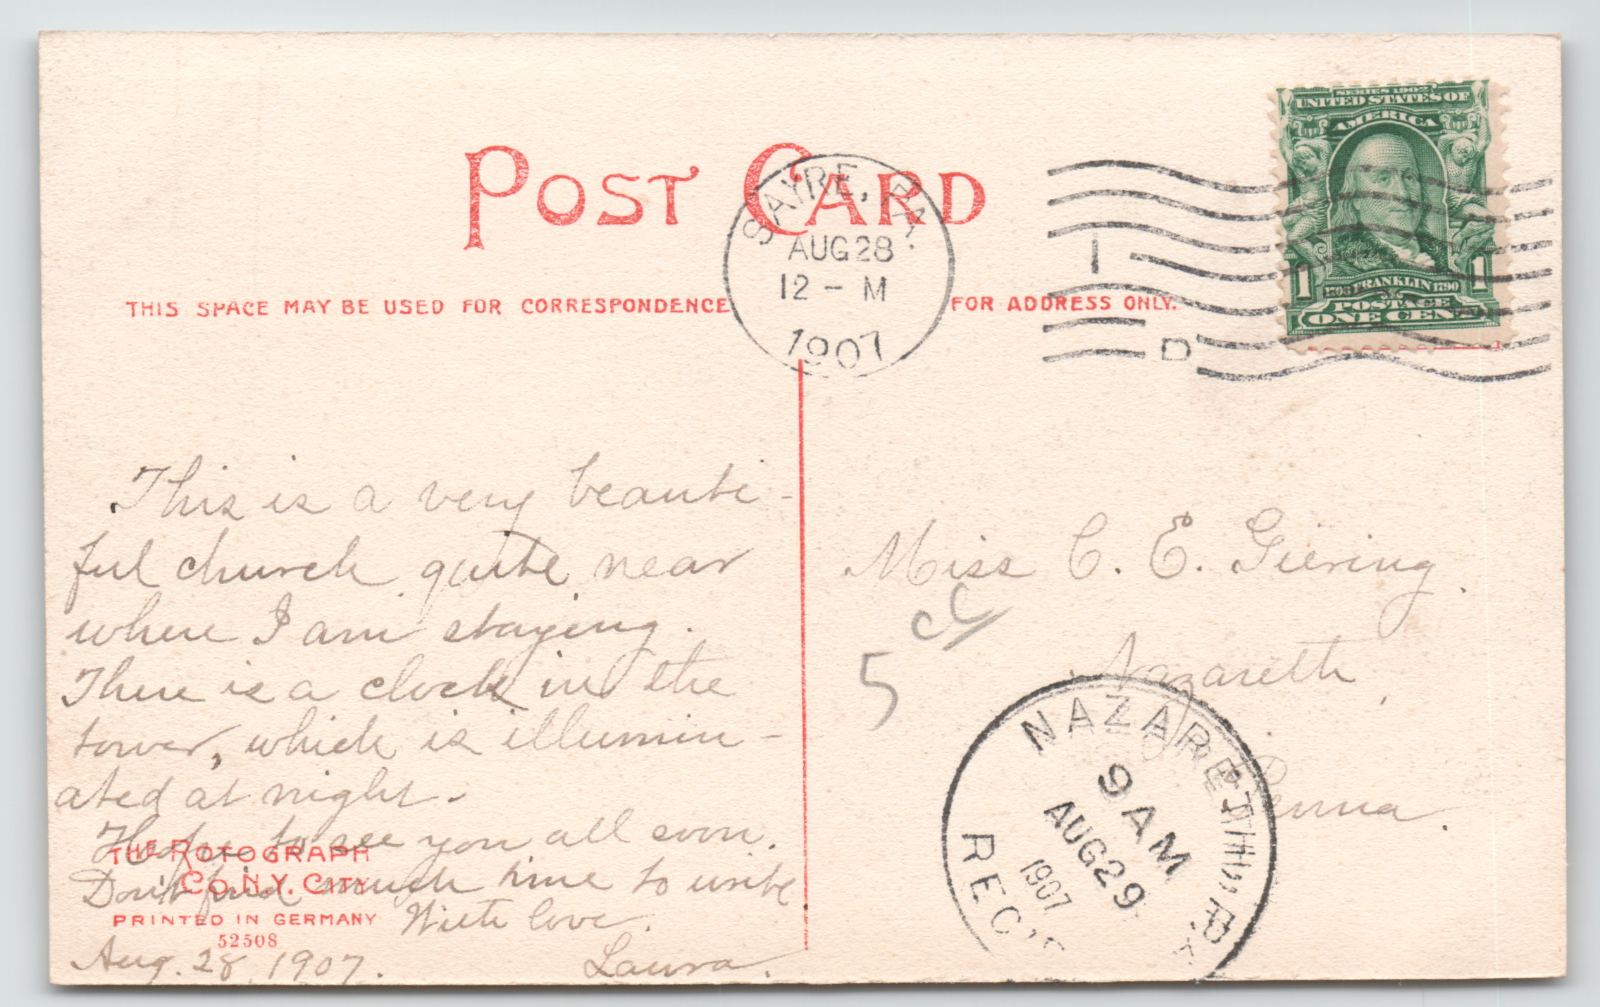 POST CARD
SAYRE, PA.
AUG 28
12 - M
1907
1
D
SERIES 1902
UNITED STATES OF
AMERICA
1 1
1706 FRANKLIN 1790
POSTAGE
ONE CENT
THIS SPACE MAY BE USED FOR CORRESPONDENCE
FOR ADDRESS ONLY.
This is a very beauti-
ful church quite near
where I am staying.
There is a clock in the
tower, which is illumin-
ated at night.
Hope to see you all soon.
Don't find much time to write
With love.
Laura.
Aug. 28, 1907.
THE ROTOGRAPH
CO. N.Y. CITY
PRINTED IN GERMANY
52508
Miss C. E. Giering.
Nazareth,
Penna.
5
NAZARETH, PA.
9 AM
AUG 29
1907
REC'D